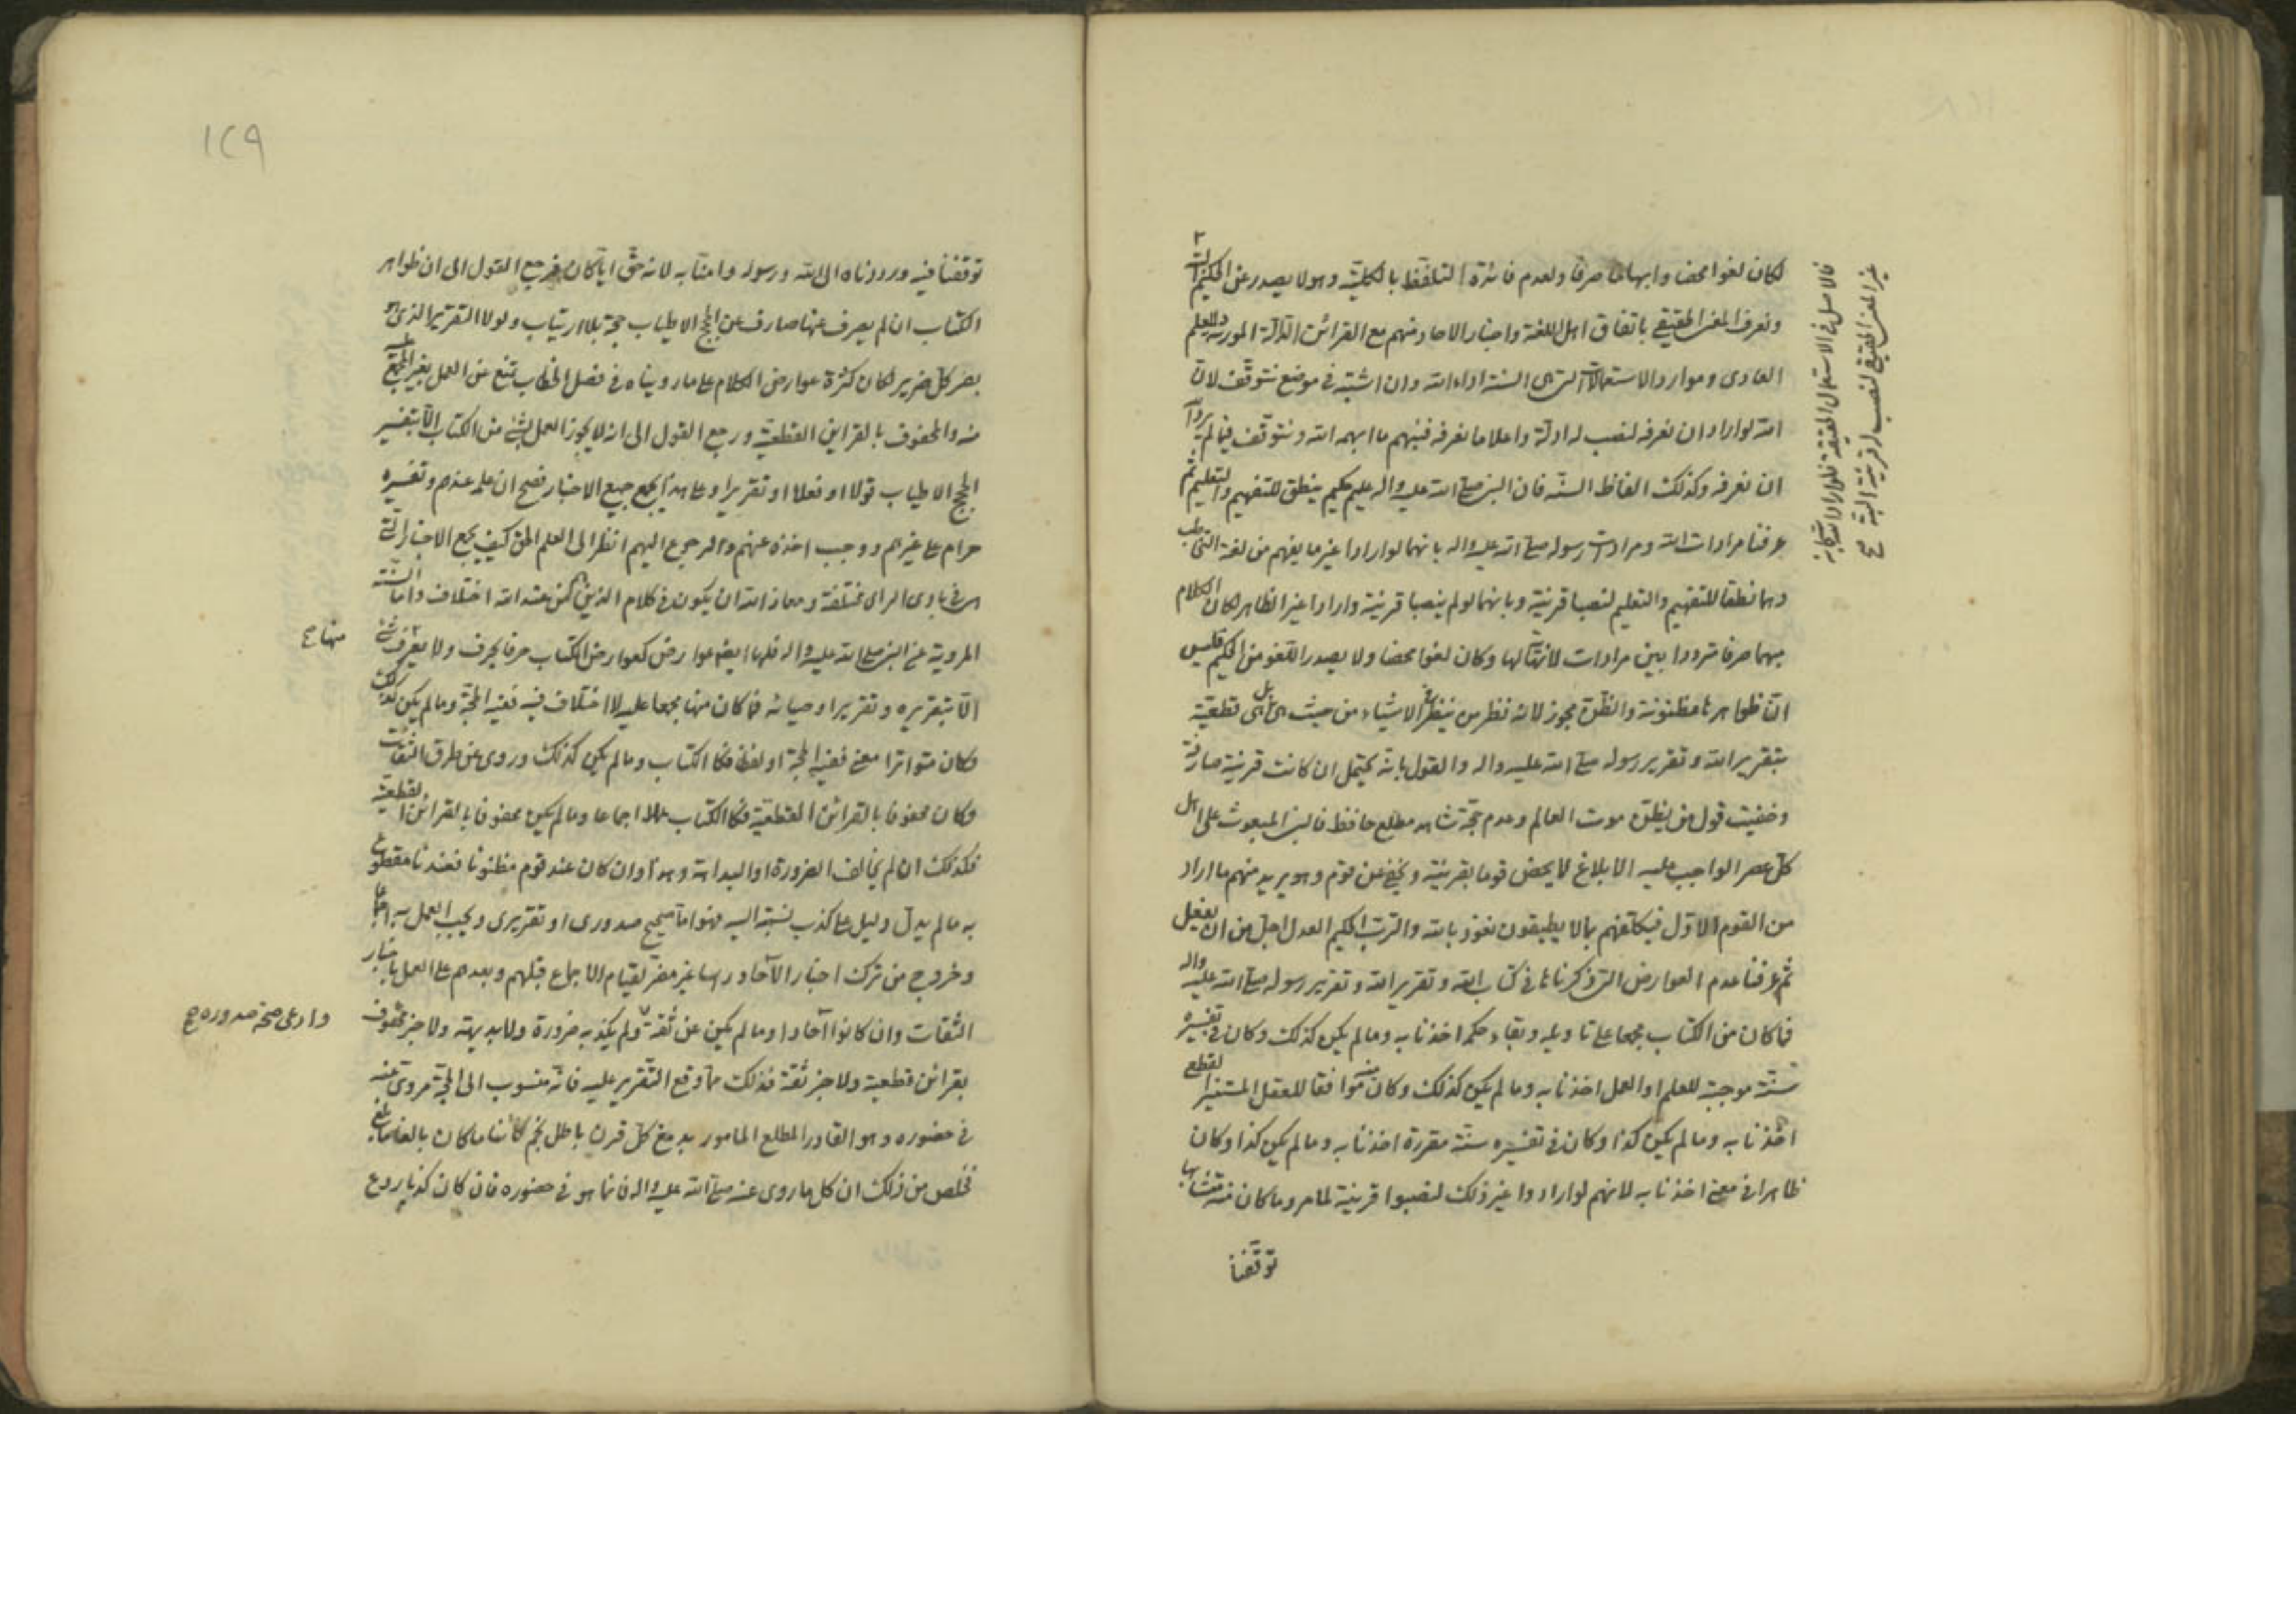 لكان لغوا محضا وابهاما صرفا ولعدم فائدة التلفظ بالكلية وهو لا يصدر عن الحكيم البتة
ونعرف المعنى الحقيقي باتفاق اهل اللغة واخبار الاحاد منهم مع القرائن الدالة المورثة للعلم
العادى وموارد الاستعمالات التى السنة اداء الله وان اشتبه فى موضع نتوقف لان
الله لو اراد ان نعرفه لنصب له ادلة واعلاما نعرفه فنبهم ما ابهمه الله ونتوقف فيما لم يرد
ان نعرفه وكذلك الفاظ السنة فان النبى صلى الله عليه واله عليم حكيم ينطق للتفهيم والتعليم ثم
عرفنا مرادات الله ومرادات رسوله صلى الله عليه واله بانهما لو ارادا غير ما يفهم من لغة التخاطب
وهما نطقا للتفهيم والتعليم لنصبا قرينة وبانهما لو لم ينصبا قرينة وارادا غير الظاهر لكان الكلام
مبهما صرفا مترددا بين مرادات لا نهاية لها وكان لغوا محضا ولا يصدر اللغو من الحكيم فليس
ان ظواهرنا مظنونة والظن مجوز لانه نظر من ينظر فى الاشياء من حيث هى بل هى قطعية
بتقرير الله وتقرير رسوله صلى الله عليه واله والقول بانه يحتمل ان كانت قرينة صارفة
وخفيت قول من يظن موت العالم وعدم حجة شاهد مطلع حافظ فالنبى المبعوث على اهل
كل عصر الواجب عليه الابلاغ لا يخص قوما بقرينة ويخفى عن قوم وهو يريد منهم ما اراد
من القوم الاول فيكلفهم بما لا يطيقون نعوذ بالله والرب الحكيم العدل اجل من ان يفعل
ثم عرفنا عدم العوارض التى ذكرناها فى كتاب الله وتقرير الله وتقرير رسوله صلى الله عليه واله
فما كان من الكتاب مجمعا على تاويله وبقاء حكمه اخذنا به وما لم يكن كذلك وكان فى تفسيره
سنة موجبة للعلم او العمل اخذنا به وما لم يكن كذلك وكان موافقا للعقل المستنير القطع
اخذنا به وما لم يكن كذا وكان فى تفسيره سنة مقررة اخذنا به وما لم يكن كذا وكان
ظاهرا فى معنى اخذنا به لانهم لو ارادوا غير ذلك لنصبوا قرينة لما مر وما كان منه متشابها
توقفنا
فالاصل فى الاستعمال الحقيقة فلو اراد الله سبحانه
غير المعنى الحقيقى لنصب له قرينة البتة صح
١٤٩
توقفنا فيه ورددناه الى الله ورسوله وامنا به لانه حق ايا كان فرجع القول الى ان ظواهر
الكتاب ان لم يصرف عنها صارف عن الحجج الاطياب حجة بلا ارتياب ولولا التقرير الذى هو
بصر كل ضرير لكان كثرة عوارض الكلام على ما رويناه فى فصل الخطاب تمنع عن العمل بغير المجمع عليه
منه والمحفوف بالقراين القطعية ورجع القول الى انه لا يجوز العمل بشئ من الكتاب الا بتفسير
الحجج الاطياب قولا او فعلا او تقريرا وعلى هذا يجمع جميع الاخبار فصح ان علمه عندهم وتفسيره
حرام على غيرهم ووجب اخذه عنهم والرجوع اليهم انظر الى العلم الحق كيف يجمع الاخبار التى
هى فى بادى الراى مختلفة ومعاذ الله ان يكون فى كلام الذين هم من عند الله اختلاف واما السنة
المروية عن النبى صلى الله عليه واله فلها ايضا عوارض كعوارض الكتاب حرفا بحرف ولا يعرف شئ
منها صح
الا بتقريره وتقرير اوصيائه فما كان منها مجمعا عليه لا اختلاف فيه ففيه الحجة وما لم يكن كذلك
وكان متواترا معنى ففيه الحجة او لفظا فكالكتاب وما لم يكن كذلك وروى عن طرق الثقات
وكان محفوفا بالقرائن القطعية فكالكتاب عملا اجماعا وما لم يكن محفوفا بالقرائن القطعية
فكذلك ان لم يخالف الضرورة او البداهة وهذا وان كان عند قوم مظنونا فعندنا مقطوع
به ما لم يدل دليل على كذب نسبته اليه فهو اما صحيح صدورى او تقريرى ويجب العمل به اجماعا
وخروج من ترك اخبار الآحاد راسا غير مضر لقيام الاجماع قبلهم وبعدهم على العمل باخبار
الثقات وان كانوا آحادا وما لم يكن عن ثقة ولم يكذبه ضرورة ولا بديهة ولا خبر محفوف
وادعى صحة صدوره صح
بقرائن قطعية ولا خبر ثقة فذلك مما وقع التقرير عليه فانه منسوب الى الحجة مروى عنه
فى حضوره وهو القادر المطلع المامور بدمغ كل قرن باطل نجم كائنا ما كان بالغا ما بلغ
فخلص من ذلك ان كل ما روى عنه صلى الله عليه واله فانما هو فى حضوره فان كان كذبا ردع